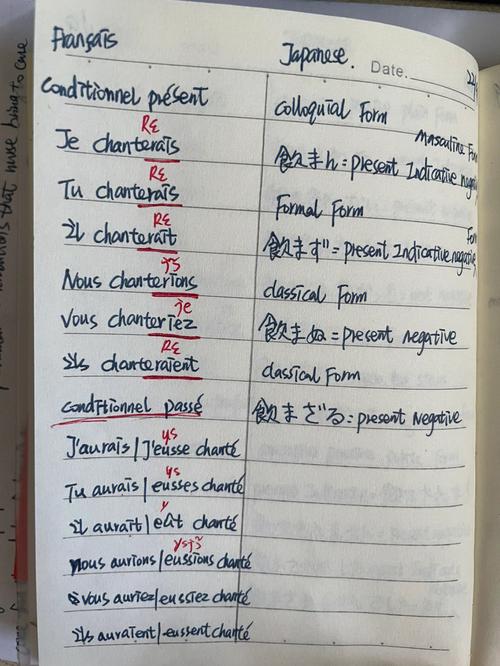 Français
Japanese.
Date.
Conditionnel présent
colloquial Form
RE
Masculine
Je chanterais
飲まん = present Indicative
RE
Tu chanterais
Formal Form
RE
Il chanterait
飲まず = present Indicative negative
jɔ̃
Nous chanterions
classical Form
je
Vous chanteriez
飲まぬ = present negative
RE
Ils chanteraient
classical Form
conditionnel passé
飲まざる: present Negative
ys
J'aurais | J'eusse chanté
ys
Tu aurais | eusses chanté
y
il aurait | eût chanté
ysjɔ̃
Nous aurions | eussions chanté
vous auriez | eussiez chanté
ils auraient | eussent chanté